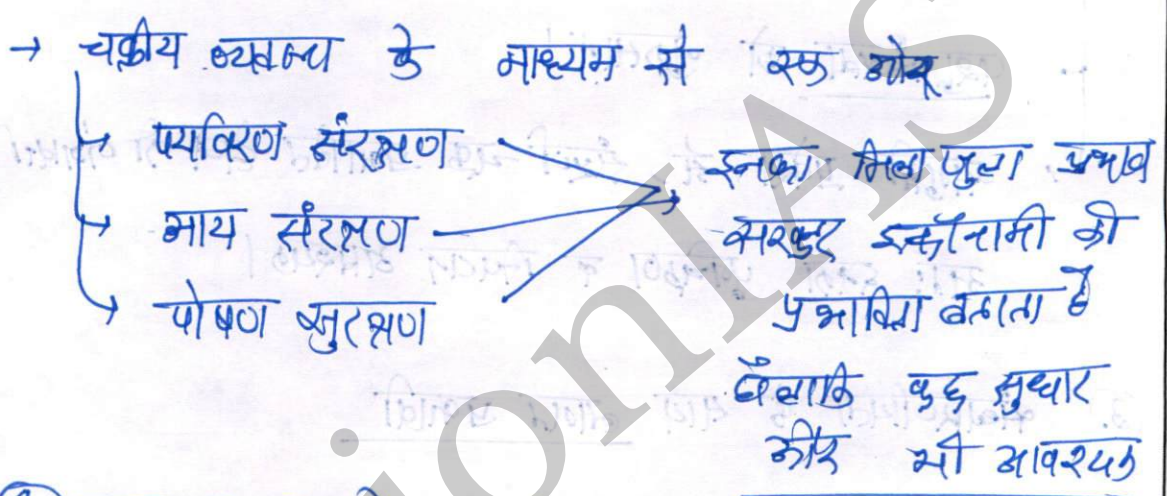 → चक्रीय व्यवस्था के माध्यम से एक ओर
→ पर्यावरण संरक्षण
→ आय संरक्षण
→ पोषण सुरक्षण
इनका मिला जुला प्रभाव
सरकुर इकॉनामी की
प्रभाविता बताता है
हॅलाकि कुछ सुधार
और भी आवश्यक
ionIAS